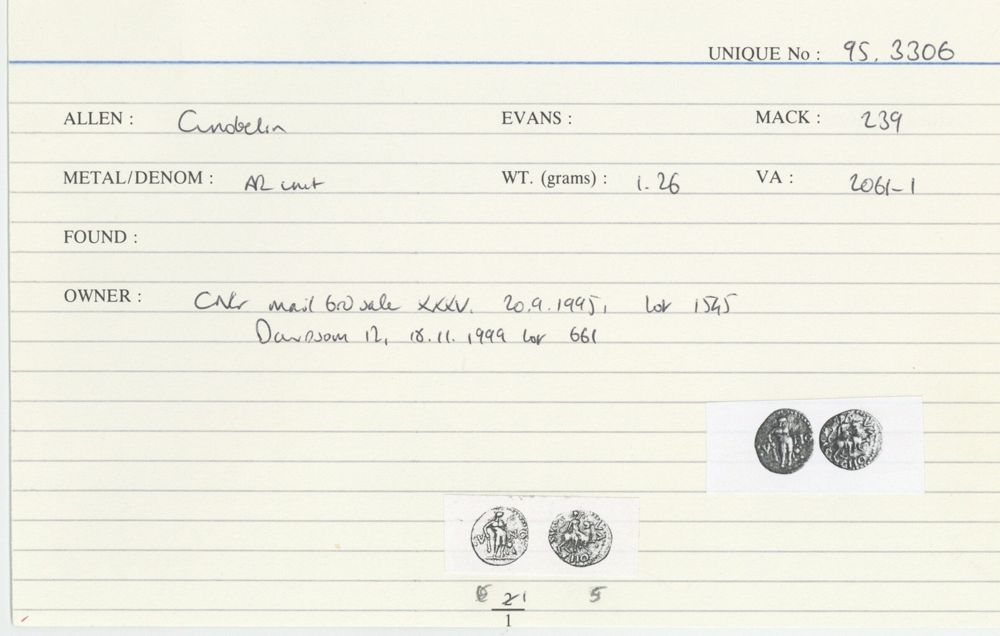 UNIQUE No : 95.3306
ALLEN : Cunobelin EVANS : MACK : 239
METAL/DENOM : AR unit WT. (grams) : 1.26 VA : 2061-1
FOUND :
OWNER : CNR mail bid sale XXXV. 20.9.1995, lot 1545
Davisson 12, 18.11.1999 lot 661
21 5
1